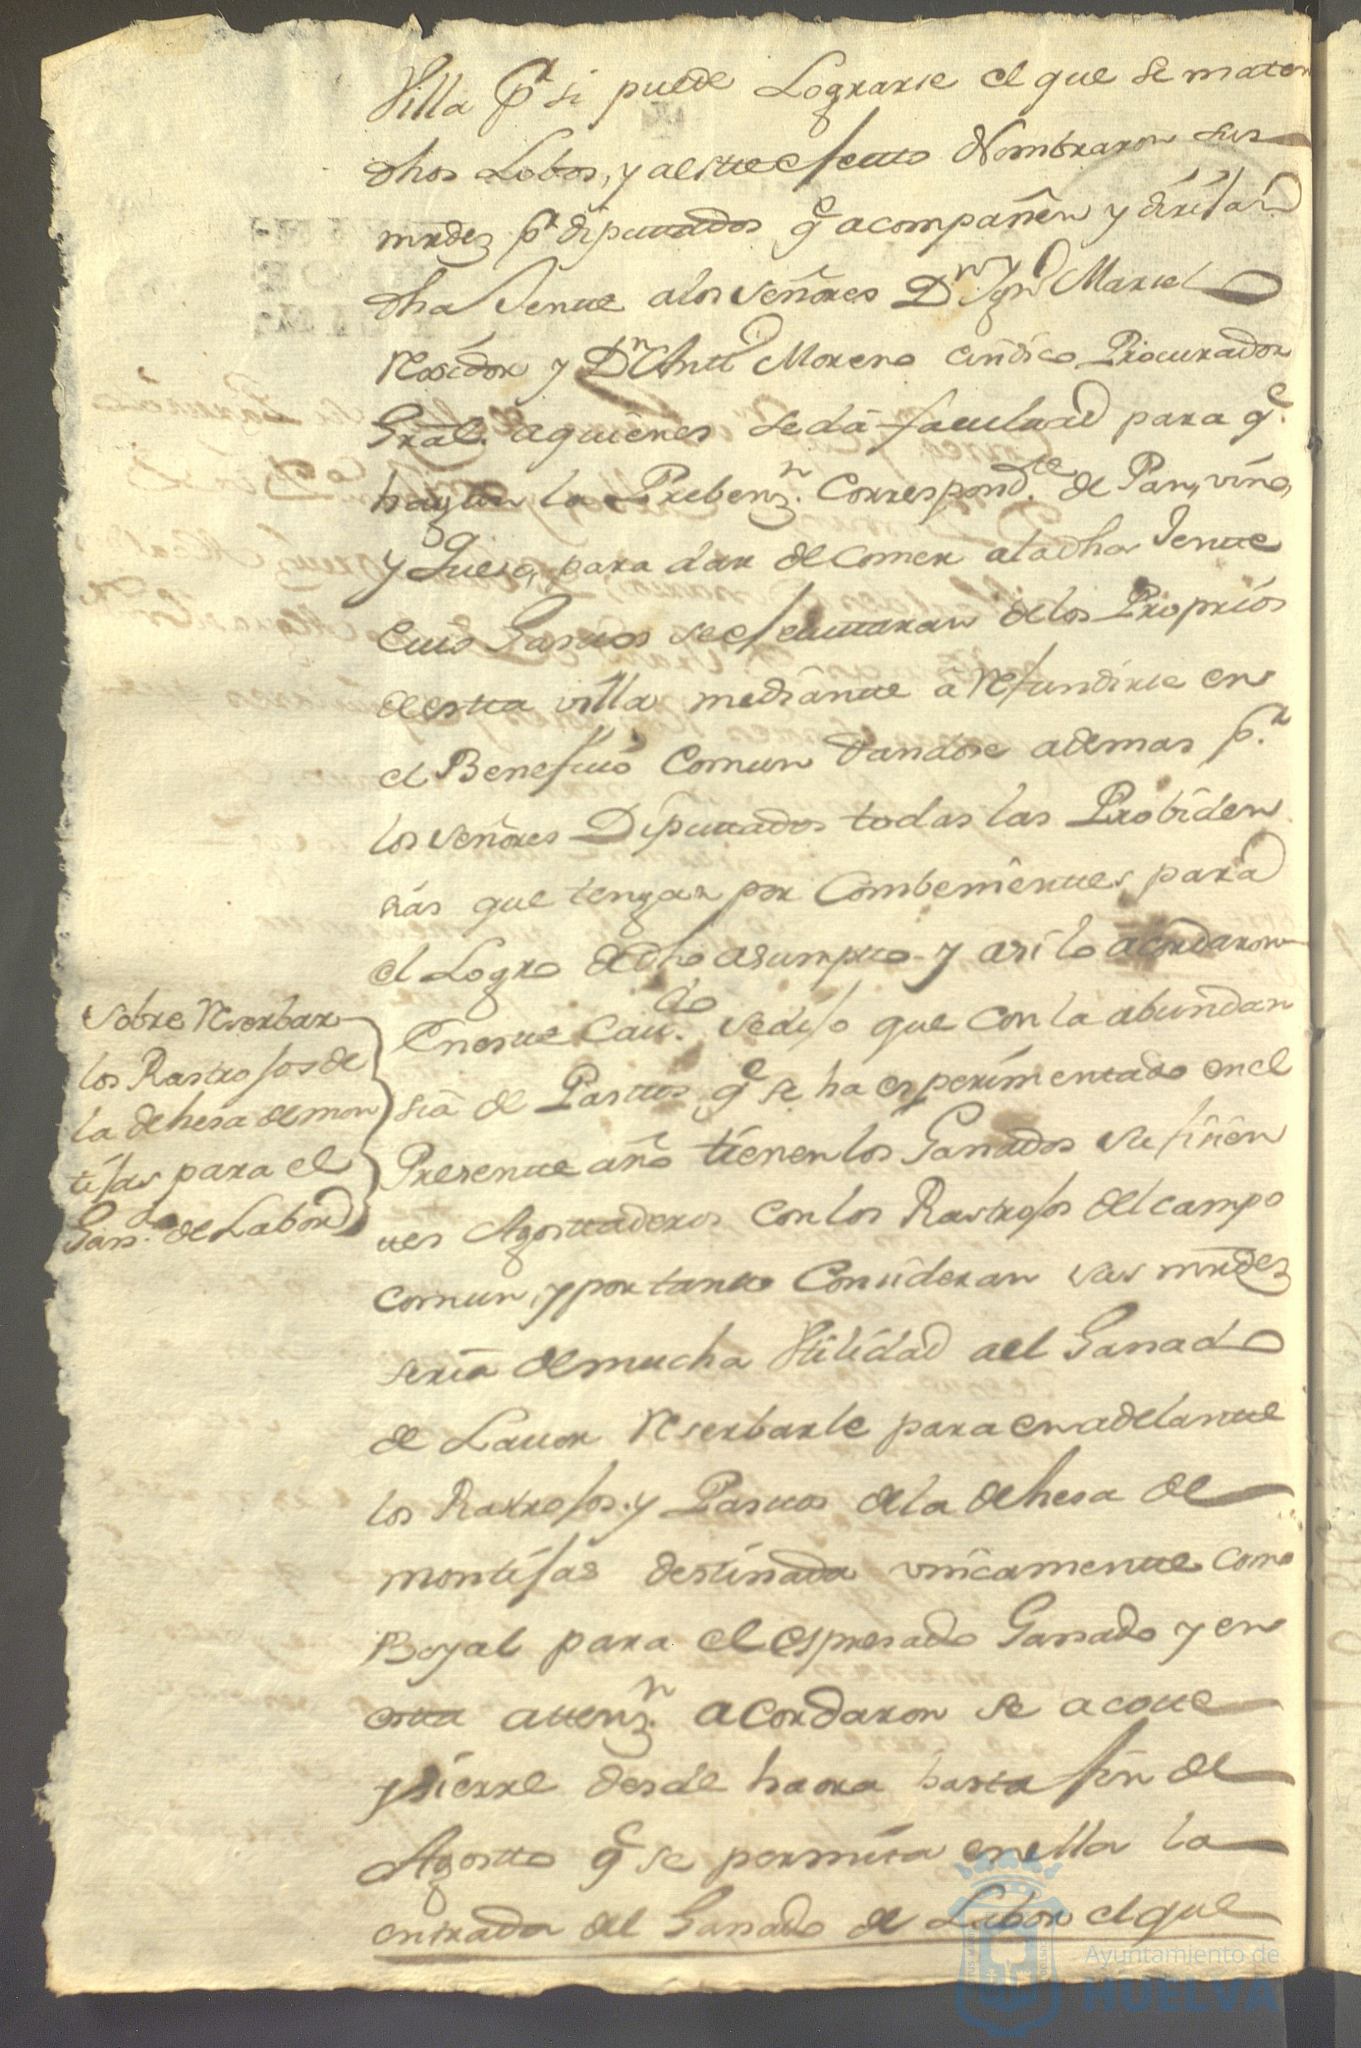 Villa pr si puede Lograrse el que se maten
dhos Lobos, y al este efecto Nombraron sus
mrdez pr diputtados qe acompañen y dirijan
dha Jente a los señores Dn Ygno Marel
Rexidor y Dn Antto Moreno cindico Procurador
Gral. a quienes se dá facultad para qe.
hagan la Prebenzn. Correspondte. de Pan, vino,
y Queso, para dar de comer a la dha Jente
Cuios Gastos se ejecuttaran de los Proprios
de esta villa mediante â Refundirse en
el Benefisio Comun dandose ademas pr.
los señores Diputtados todas las Probiden
sias que tengan por Combenientes para
el Logro de dho asumpto y asi lo acordaron
Sobre Reserbar
los Rastrojos de
la dehesa de mon
tijas para el
Gando. de Labor
En este Cavdo. se dijo que con la abundan
sia de Pasttos qe se ha esperimentado en el
Presente año tienen los Ganados sufisien
tes Agosttaderos con los Rastrojos del campo
comun, y por tanto Consideran sus mrdez
seria de mucha Utilidad a el Ganado
de Lavor Reserbarle para en adelante
los Rastrojos y Pastos de la dehesa de
montijas destinada unicamente como
Boyal para el espresado Ganado y en
esta attenzn. acordaron se acote
y sierre desde haora hasta fin de
Agosto qe se permita en ella la
entrada del Ganado de Labor el que
Ayuntamiento de
HUELVA